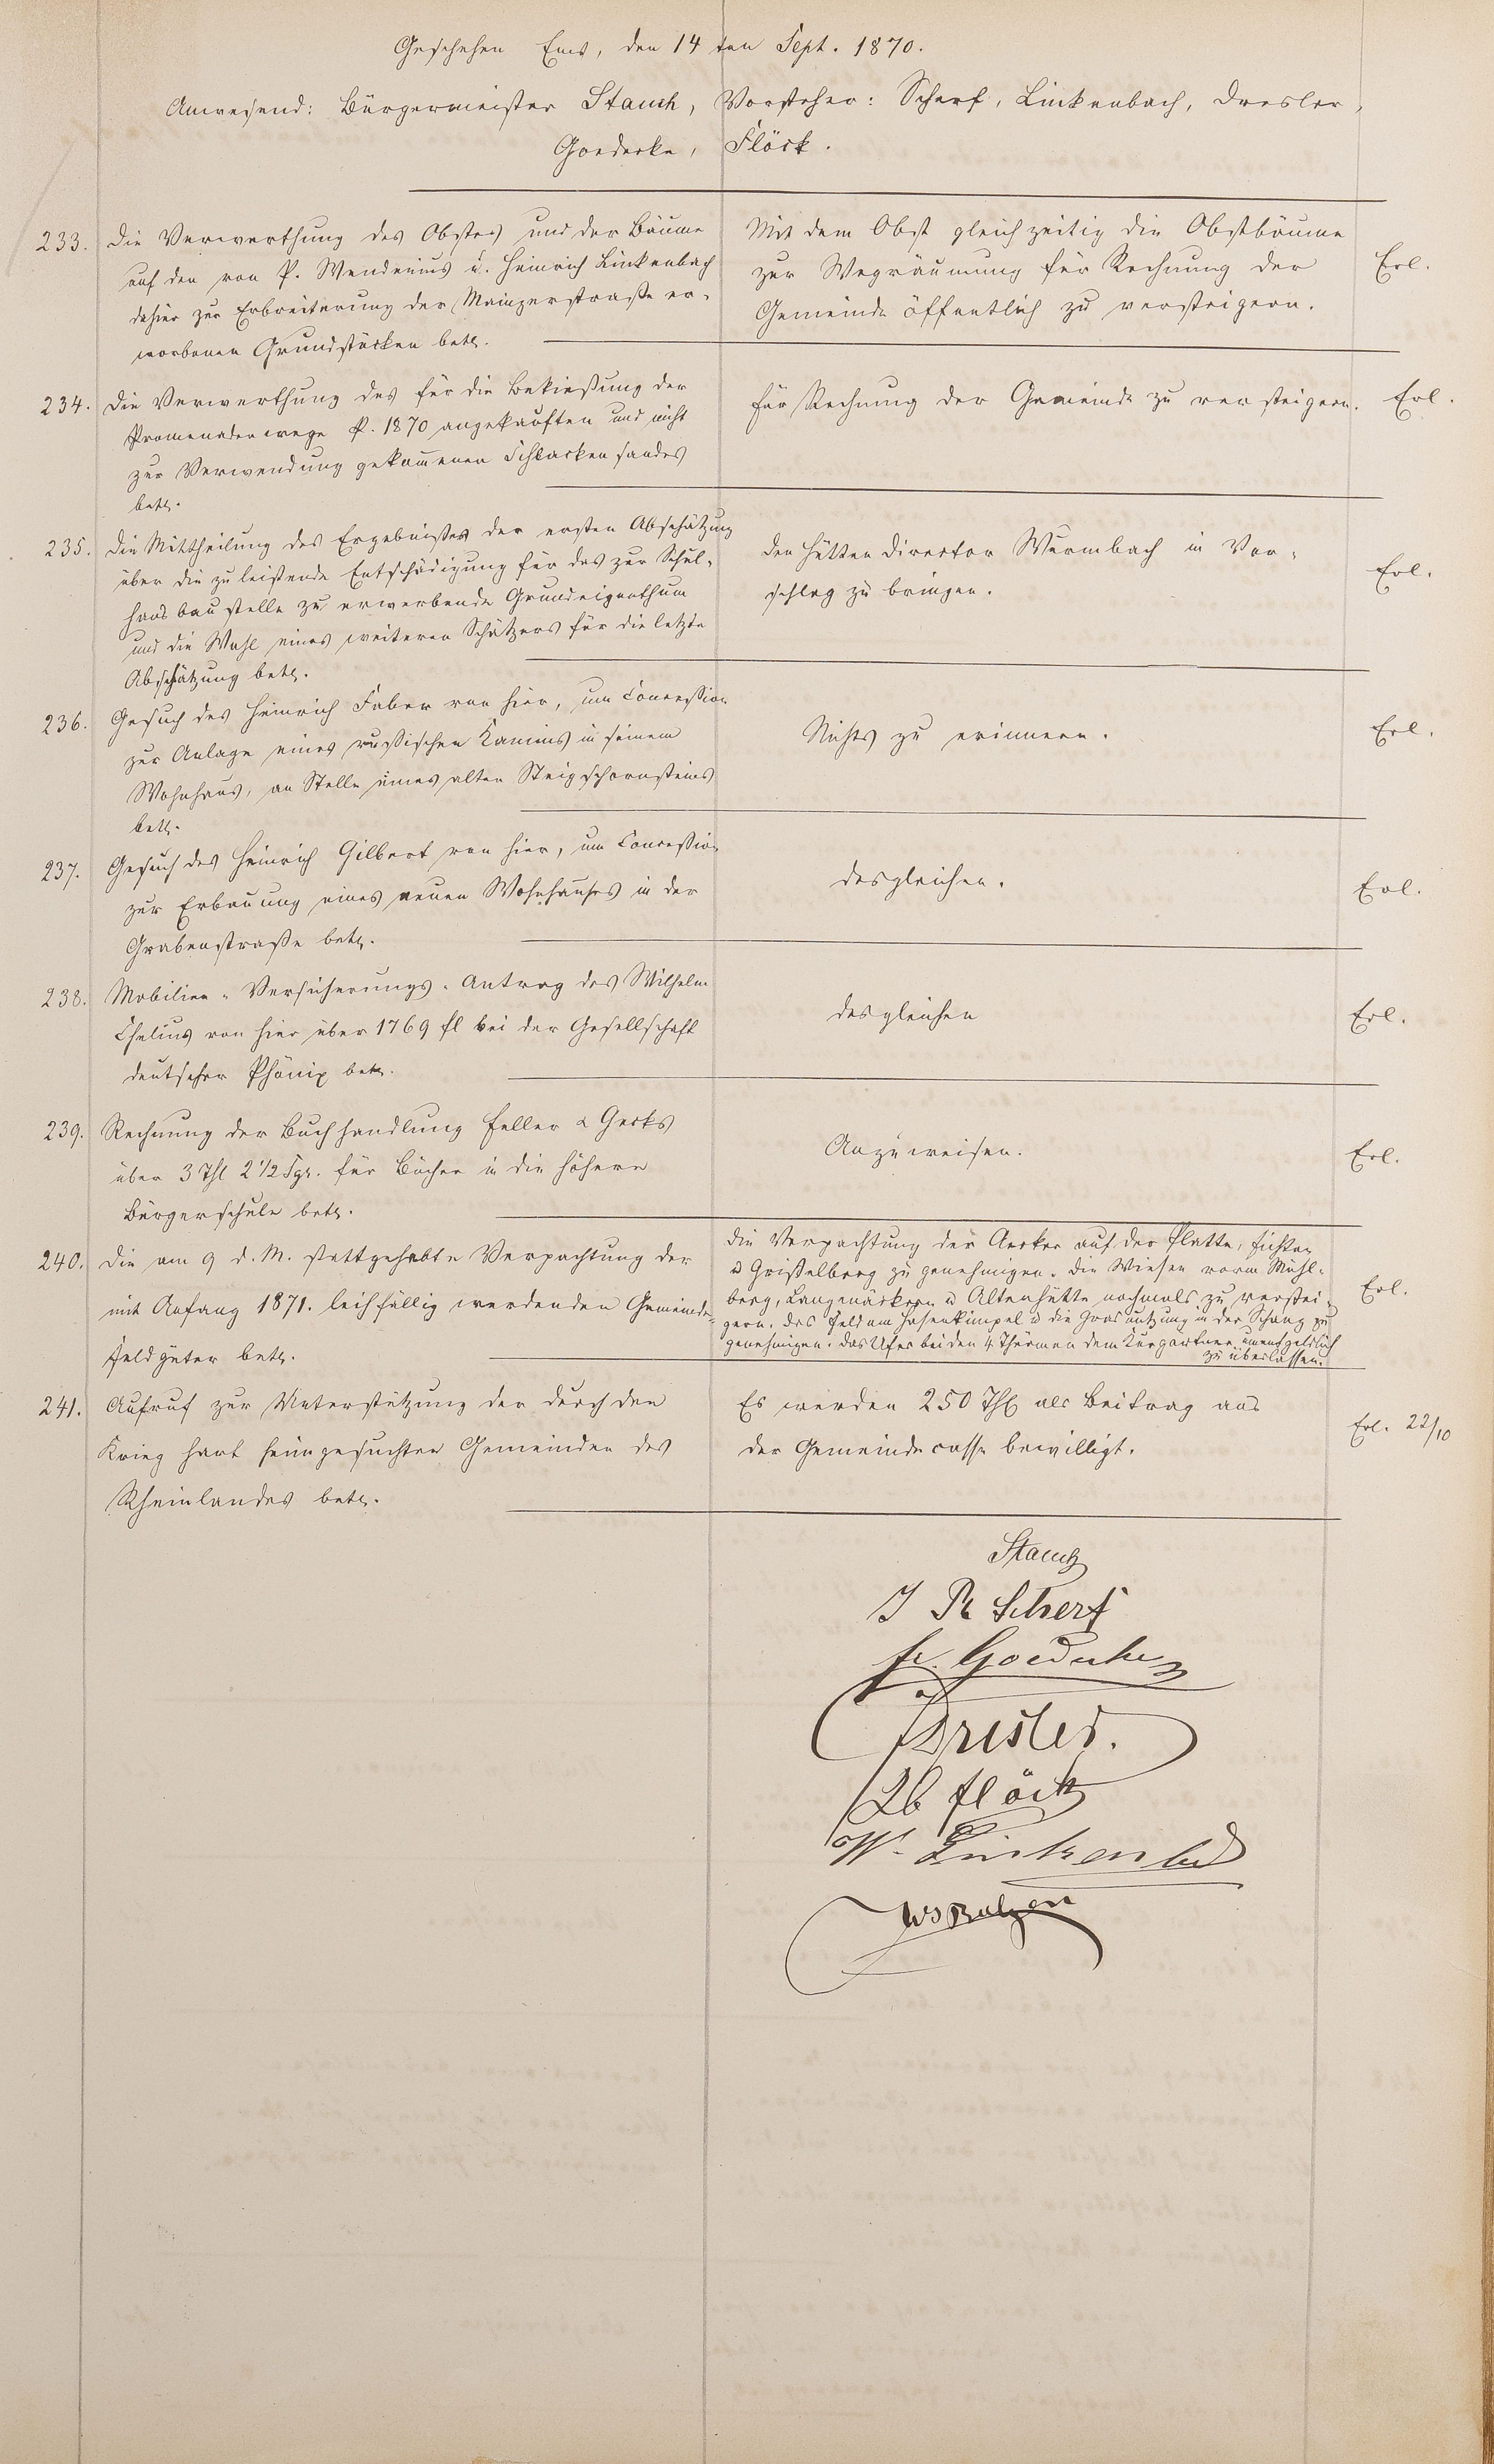 Geschehen Ems, den 14ten Sept. 1870.
Anwesend: Bürgermeister Stauch, Vorsteher: Scherf, Linkenbach, Dresler,
Goedecke, Flöck.
233. Die Verwerthung des Obstes und der Bäume
auf den von P. Wendenius u. Heinrich Linkenbach
dahier zur Erbreiterung der Mainzerstraße er-
worbenen Grundstücken betr.
Mit dem Obst gleichzeitig die Obstbäume
zur Wegräumung für Rechnung der
Gemeinde öffentlich zu versteigern.
Erl.
234. Die Verwerthung des für die Bekiesung der
Promenadenwege p. 1870 angekauften und nicht
zur Verwendung gekom̅enen Schlackensandes
betr.
Für Rechnung der Gemeinde zu versteigern.
Erl.
235. Die Mittheilung des Ergebnißes der ersten Abschätzung
über die zu leistende Entschädigung für das zur Schul-
hausbaustelle zu erwerbende Grundeigenthum
und die Wahl eines weiteren Schätzers für die letzte
Abschätzung betr.
Den Hüttendirector Wurmbach in Vor-
schlag zu bringen.
Erl.
236. Gesuch des Heinrich Faber von hier, um Concession
zur Anlage eines russischen Kamins in seinem
Wohnhaus, an Stelle eines alten Steigschornsteins
betr.
Nichts zu erinnern.
Erl.
237. Gesuch des Heinrich Gilbert von hier, um Concession
zur Erbauung eines neuen Wohnhauses in der
Grabenstraße betr.
desgleichen.
Erl.
238. Mobilien-Versicherungs-Antrag des Wilhelm
Chelius von hier über 1769 fl bei der Gesellschaft
deutscher Phönix betr.
desgleichen
Erl.
239. Rechnung der Buchhandlung Feller & Gecks
über 3 Thl 2 1/2 Sgr. für Bücher in die höhere
Bürgerschule betr.
Anzuweisen.
Erl.
240. Die am 9 d. M. stattgehabte Verpachtung der
mit Anfang 1871. leihfällig werdenden Gemeinde-
feldgüter betr.
Die Verpachtung der Aecker auf der Platte, Fichten
u Grißelberg zu genehmigen. Die Wiesen vorm Mühl-
berg, Langenäckern u Altenhütte nochmals zu verstei-
gern. Das Feld am Hasenkimpel u die Grasnutzung in der Schanz zu
genehmigen. Das Ufer bei den 4 Thürmen dem Kurgärtner unentgeldlich
zu überlassen.
Erl.
241. Aufruf zur Unterstützung der durch den
Krieg hart heimgesuchten Gemeinden des
Rheinlandes betr.
Es werden 250 Thl als Beitrag aus
der Gemeindecasse bewilligt.
Erl. 22/10
Stauch
J Ph Scherf
fr. Goedecke
Dresler.
Lb Flöck
W. Linkenbach